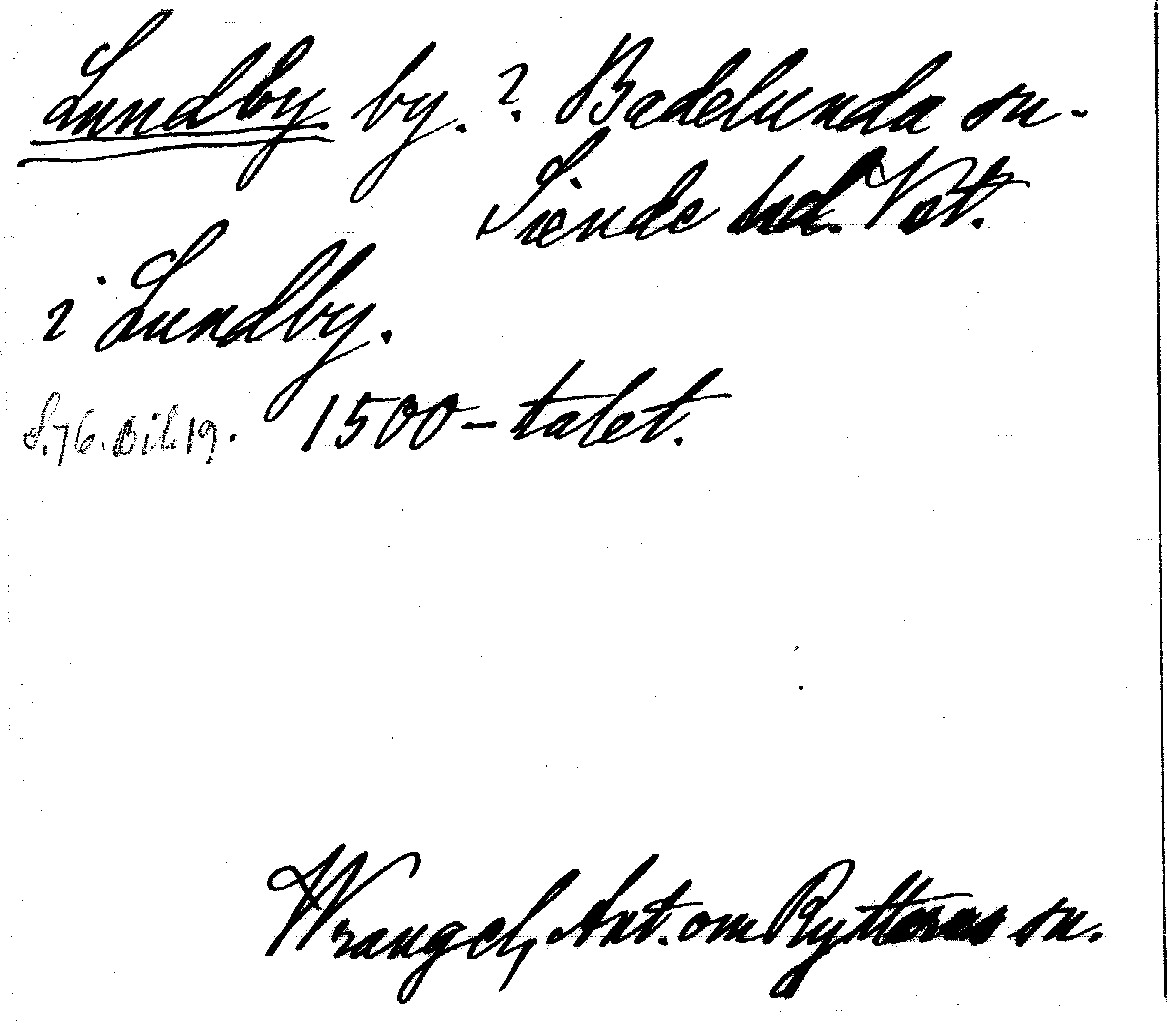 Lundby by. ? Badelunda sn.
Siende hd. Vst.
i Lundby.
S.76. Bil. 19. 1500-talet.
Wrangel, Ant. om Rytterne sn.